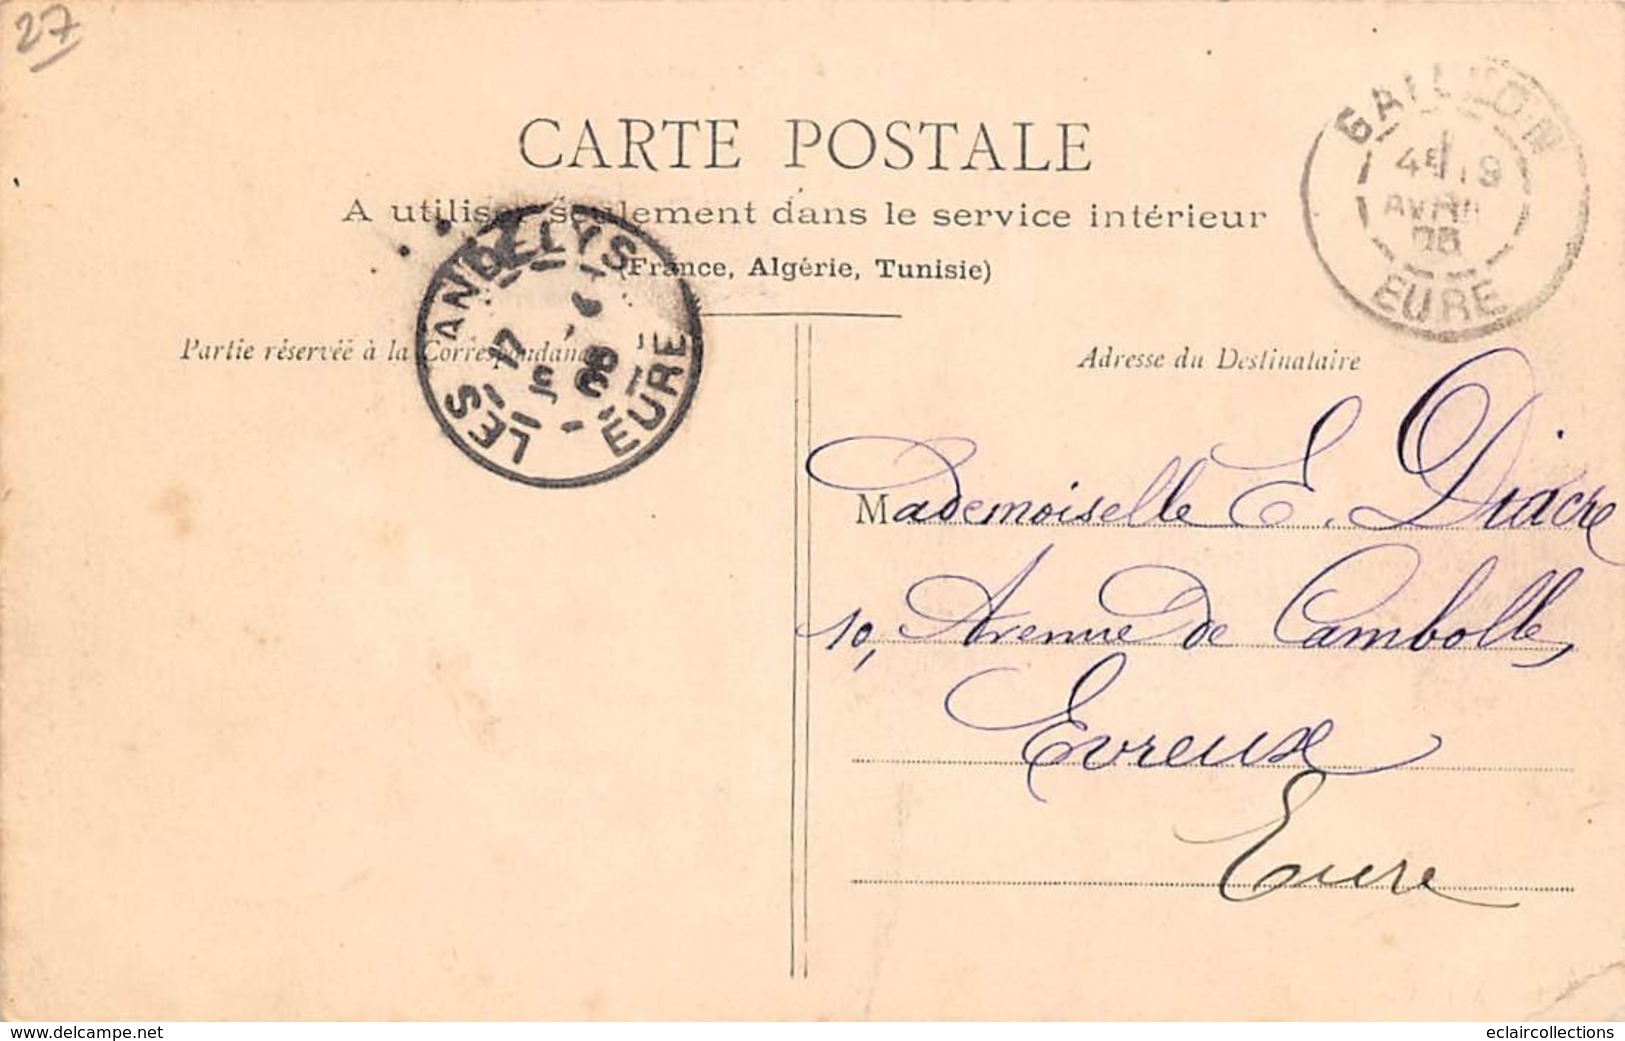 27
CARTE POSTALE
A utiliser seulement dans le service intérieur
(France, Algérie, Tunisie)
GAILLON
AVRIL
EURE
LES ANDELYS
EURE
Partie réservée à la Correspondance
Adresse du Destinataire
Mademoiselle E. Diacre
10, Avenue de Cambolle,
Evreux
Eure
www.delcampe.net
eclaircollections